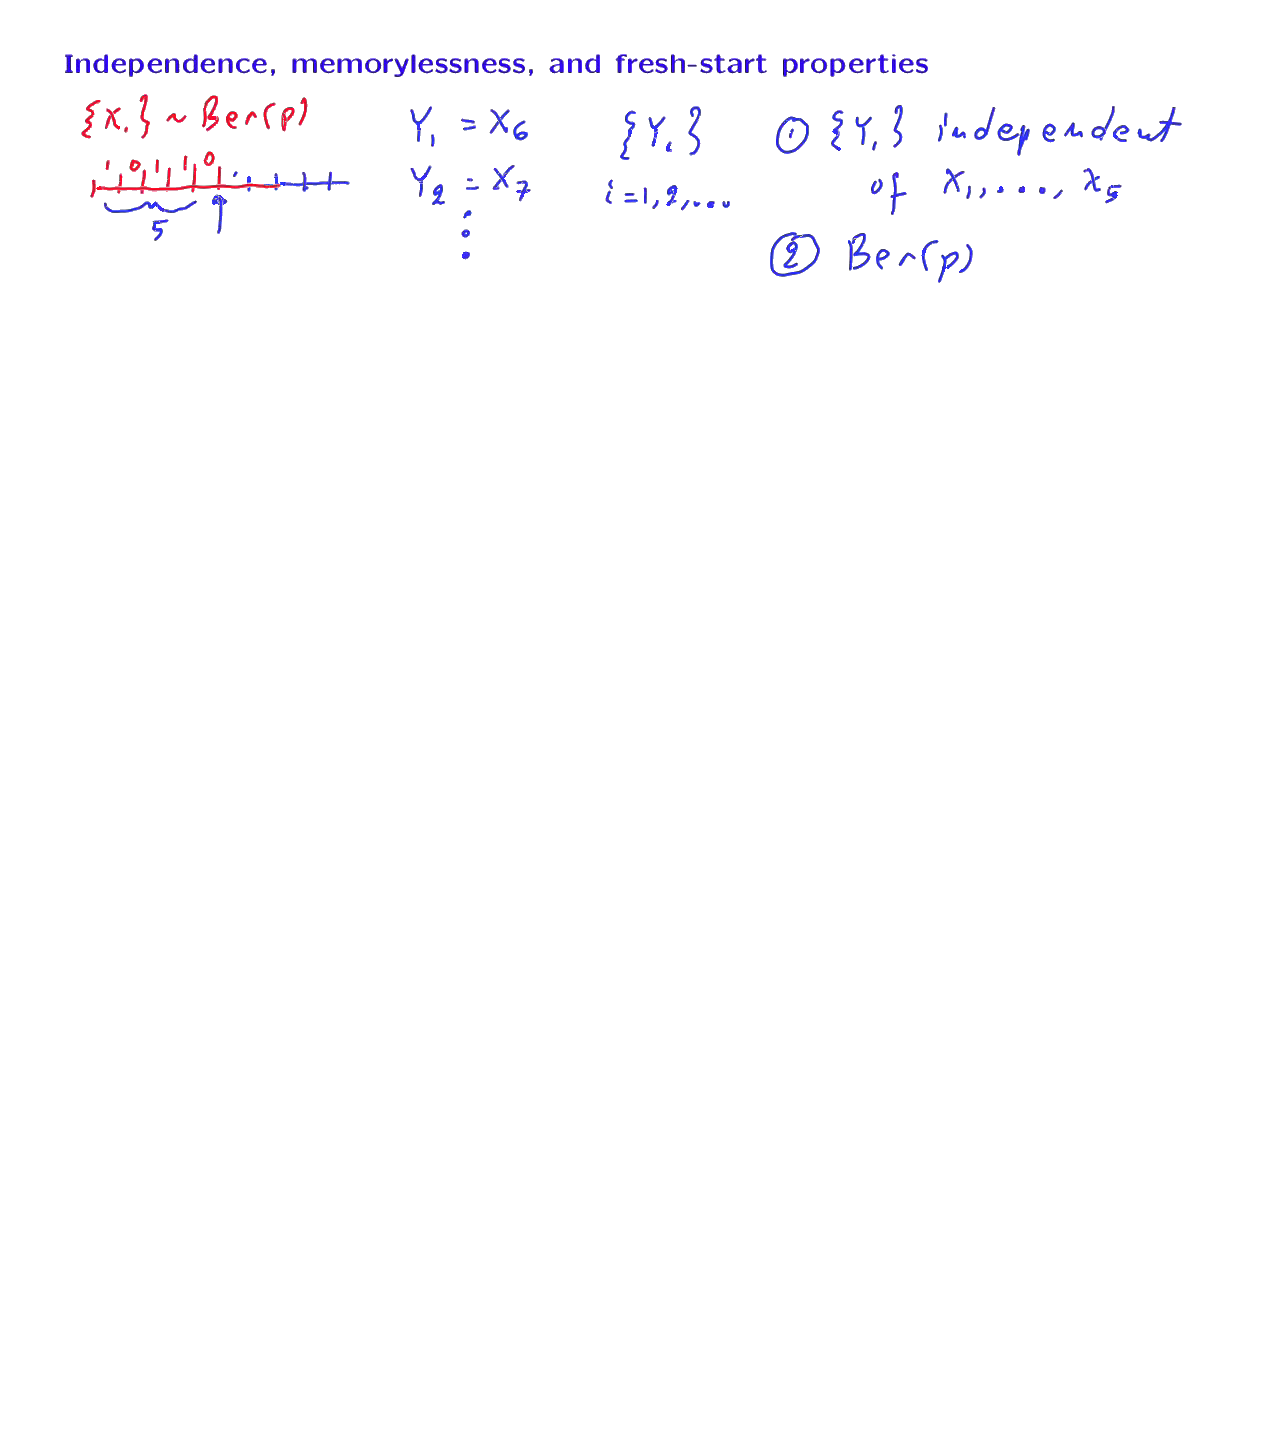 Independence, memorylessness, and fresh-start properties
{X.} ~ Ber(p)
1 0 1 1 0
5
Y₁ = X₆
Y₂ = X₇
⋮
{Yᵢ}
i = 1, 2, ...
① {Yᵢ} independent
of X₁, ...., X₅
② Ber(p)